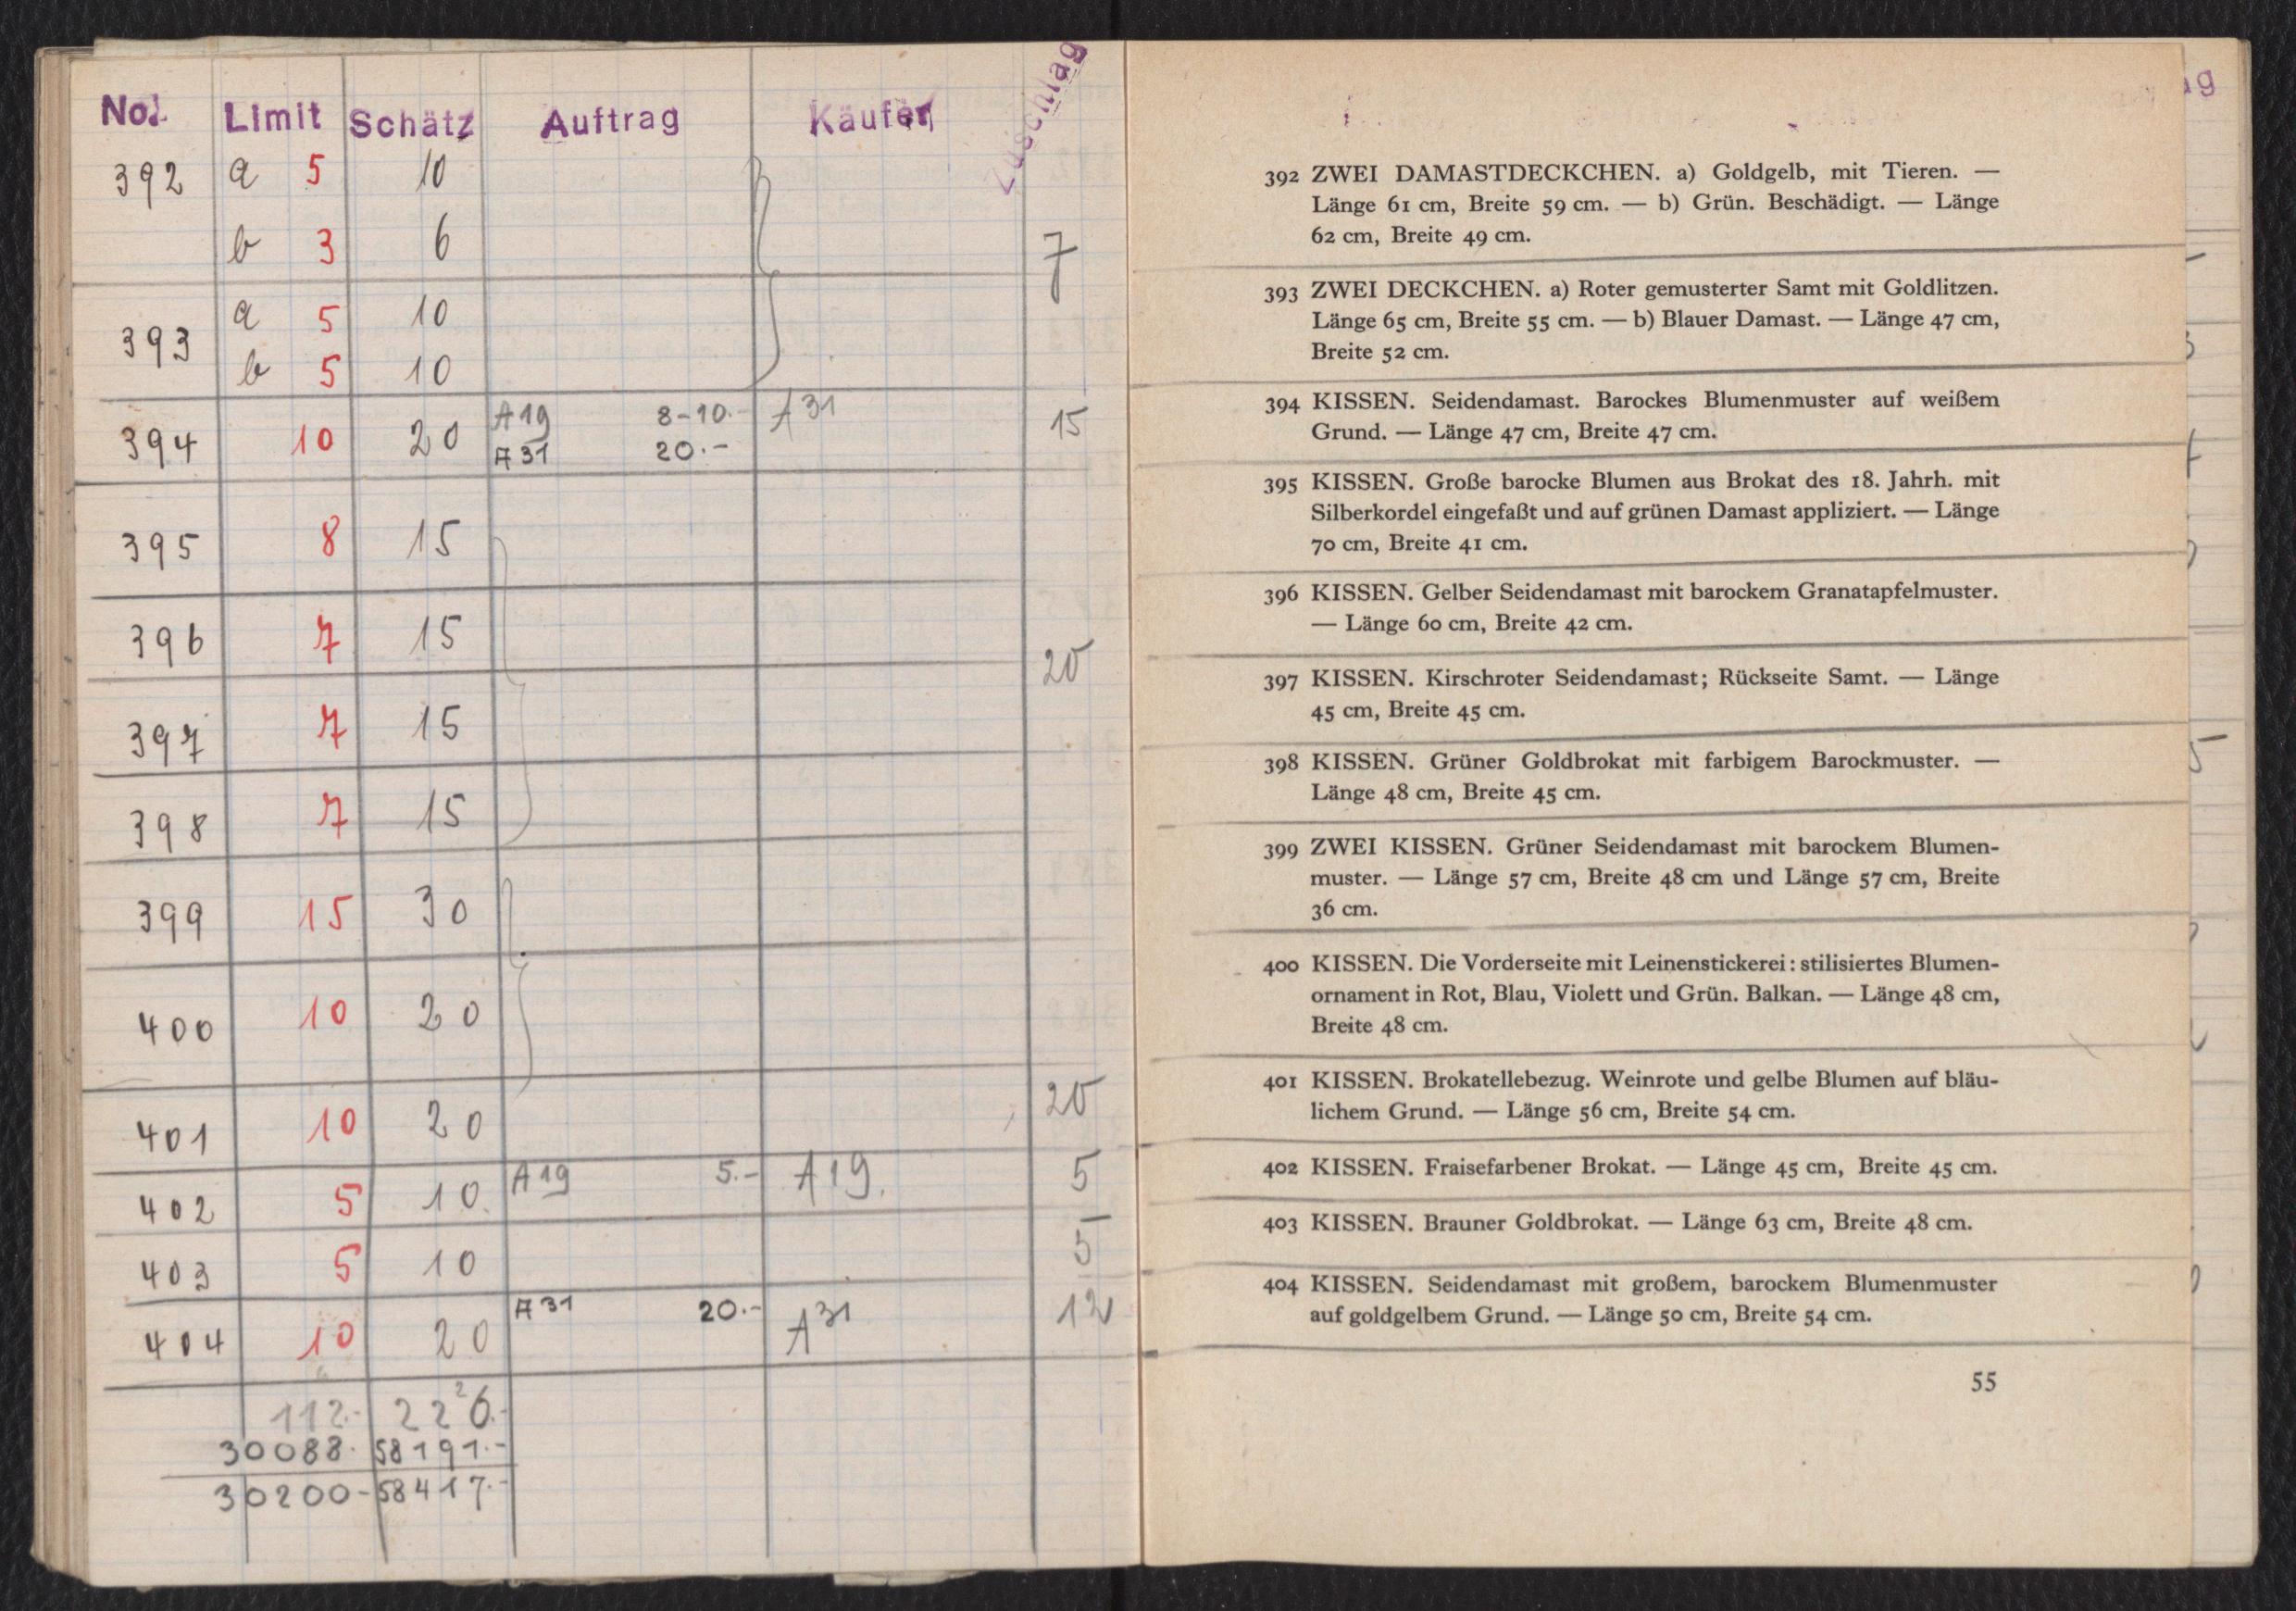 No. Limit Schätz Auftrag Käufer Zuschlag
392 a 5 10
b 3 6
7
393 a 5 10
b 5 10
394 10 20 A19 8-10.- A31 15
A31 20.-
395 8 15
396 7 15
20
397 7 15
398 7 15
399 15 30
400 10 20
401 10 20 20
402 5 10 A19 5.- A19. 5
403 5 10 5
404 10 20 A31 20.- A31 12
112.- 226.-
30088.- 58191.-
30200.- 58417.-
392 ZWEI DAMASTDECKCHEN. a) Goldgelb, mit Tieren. —
Länge 61 cm, Breite 59 cm. — b) Grün. Beschädigt. — Länge
62 cm, Breite 49 cm.
393 ZWEI DECKCHEN. a) Roter gemusterter Samt mit Goldlitzen.
Länge 65 cm, Breite 55 cm. — b) Blauer Damast. — Länge 47 cm,
Breite 52 cm.
394 KISSEN. Seidendamast. Barockes Blumenmuster auf weißem
Grund. — Länge 47 cm, Breite 47 cm.
395 KISSEN. Große barocke Blumen aus Brokat des 18. Jahrh. mit
Silberkordel eingefaßt und auf grünen Damast appliziert. — Länge
70 cm, Breite 41 cm.
396 KISSEN. Gelber Seidendamast mit barockem Granatapfelmuster.
— Länge 60 cm, Breite 42 cm.
397 KISSEN. Kirschroter Seidendamast; Rückseite Samt. — Länge
45 cm, Breite 45 cm.
398 KISSEN. Grüner Goldbrokat mit farbigem Barockmuster. —
Länge 48 cm, Breite 45 cm.
399 ZWEI KISSEN. Grüner Seidendamast mit barockem Blumen-
muster. — Länge 57 cm, Breite 48 cm und Länge 57 cm, Breite
36 cm.
400 KISSEN. Die Vorderseite mit Leinenstickerei: stilisiertes Blumen-
ornament in Rot, Blau, Violett und Grün. Balkan. — Länge 48 cm,
Breite 48 cm.
401 KISSEN. Brokatellebezug. Weinrote und gelbe Blumen auf bläu-
lichem Grund. — Länge 56 cm, Breite 54 cm.
402 KISSEN. Fraisefarbener Brokat. — Länge 45 cm, Breite 45 cm.
403 KISSEN. Brauner Goldbrokat. — Länge 63 cm, Breite 48 cm.
404 KISSEN. Seidendamast mit großem, barockem Blumenmuster
auf goldgelbem Grund. — Länge 50 cm, Breite 54 cm.
55